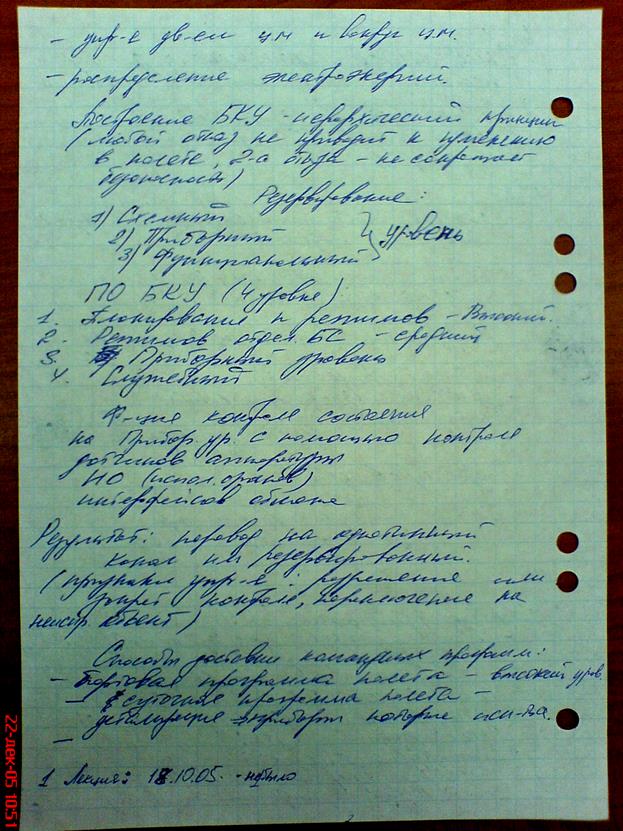 - упр-е дв-ем цм и вокруг цм.
- распределение электроэнергии.
Построение БКУ - иерархический принцип
(любой отказ не приводит к изменению
в полете, 2-а отказа - не сокращает
безопасность)
Резервирование:
1) Схемный
2) Приборный
3) Функциональный } уровень
ПО БКУ (4 уровня)
1. Планирования и режимов - Высокий.
2. Режимов отдел. БС - средний
3. Приборный уровень
4. Служебный
Ф-ция контроля состояния
на Прибор. ур. с помощью контроля
датчиков аппаратуры
ИО (испол. органов)
интерфейсов обмена
Результат: перевод на
канал или резервированный.
(признаки упр-я: разрешение или
запрет контроля, переключение на
Способы доставки командных программ:
- бортовая программа полета - высокий уров.
- суточная программа полета -
приборы которые исп-ся.
-
1 Лекция: 18.10.05. - не было
22-дек-05 10:51